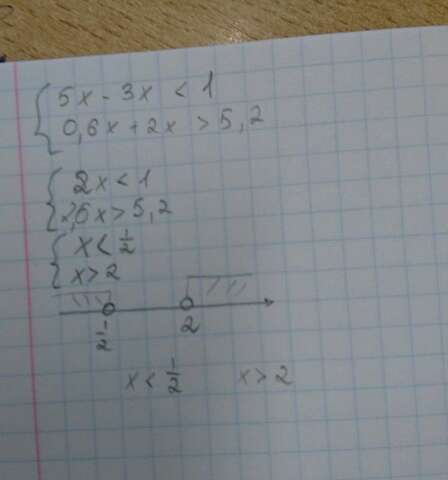 5x - 3x < 1
0,6x + 2x > 5,2
2x < 1
2,6x > 5,2
x < 1/2
x > 2
1/2 2
x < 1/2 x > 2